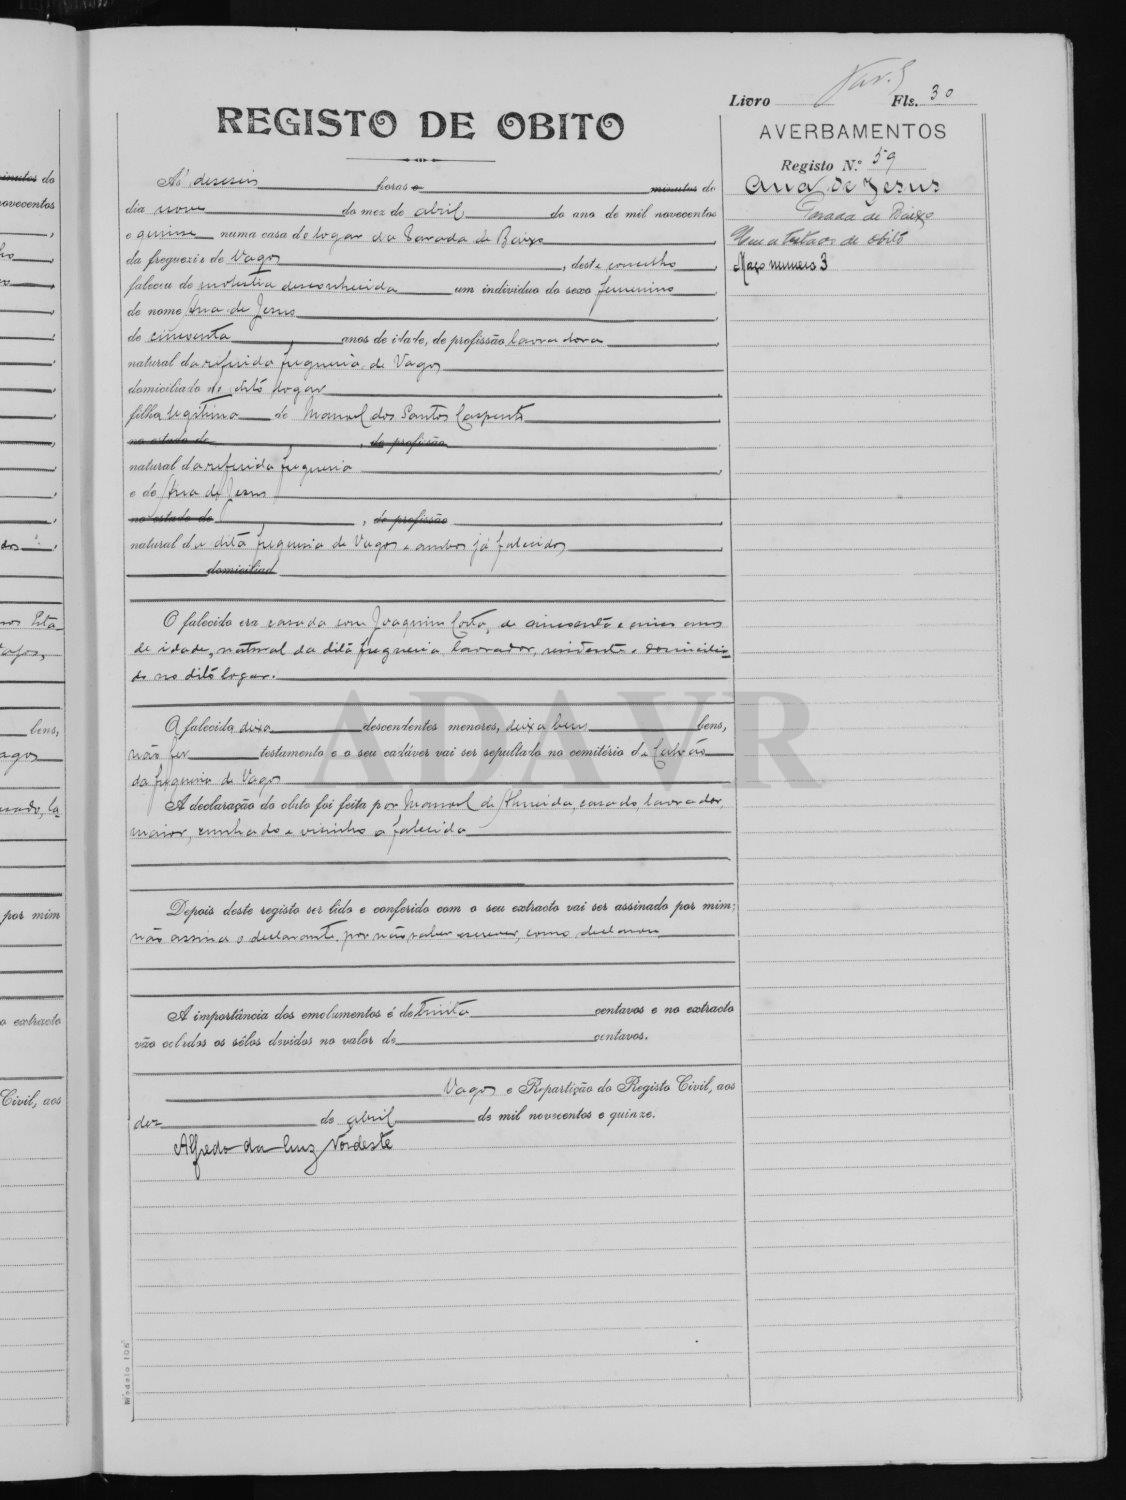 Livro Fls. 30
REGISTO DE OBITO
AVERBAMENTOS
Registo N.º 59
Ana de Jesus
Parada de Baixo
Maço numero 3
Às deseseis horas e minutos do
dia nove do mez de abril do ano de mil novecentos
e quinze numa casa do logar da Parada de Baixo
da freguezia de Vagos, deste concelho,
faleceu de molestia desconhecida um individuo do sexo femenino,
de nome Ana de Jesus
de cincoenta anos de idade, de profissão lavradora,
natural da referida freguesia de Vagos
domiciliado no dito logar
filha legitima de Manoel dos Santos
no estado de , de profissão
natural da referida freguesia
e de Ana de Jesus
no estado de , de profissão
natural da dita freguesia de Vagos e ambos já falecidos
domiciliad
O falecido era casada com Joaquim Costa, de cincoenta e anos
de idade, natural da dita freguesia, lavrador, residente e domicilia
do no dito logar.
O falecido deixa descendentes menores, deixa bens bens,
não fez testamento e o seu cadáver vai ser sepultado no cemitério de Calvão
da freguesia de Vagos
A declaração do obito foi feita por Manoel de Almeida, casado, lavrador,
maior, cunhado e visinho a falecida
Depois deste registo ser lido e conferido com o seu extracto vai ser assinado por mim;
não assina o declarante, por não saber escrever, como declarou
A importância dos emolumentos é de trinta centavos e no extracto
vão colados os sêlos devidos no valor de centavos.
Vagos e Repartição do Registo Civil, aos
dez de abril de mil novecentos e quinze.
Alfredo da Cruz Nordeste
Modelo 106
ADAVR